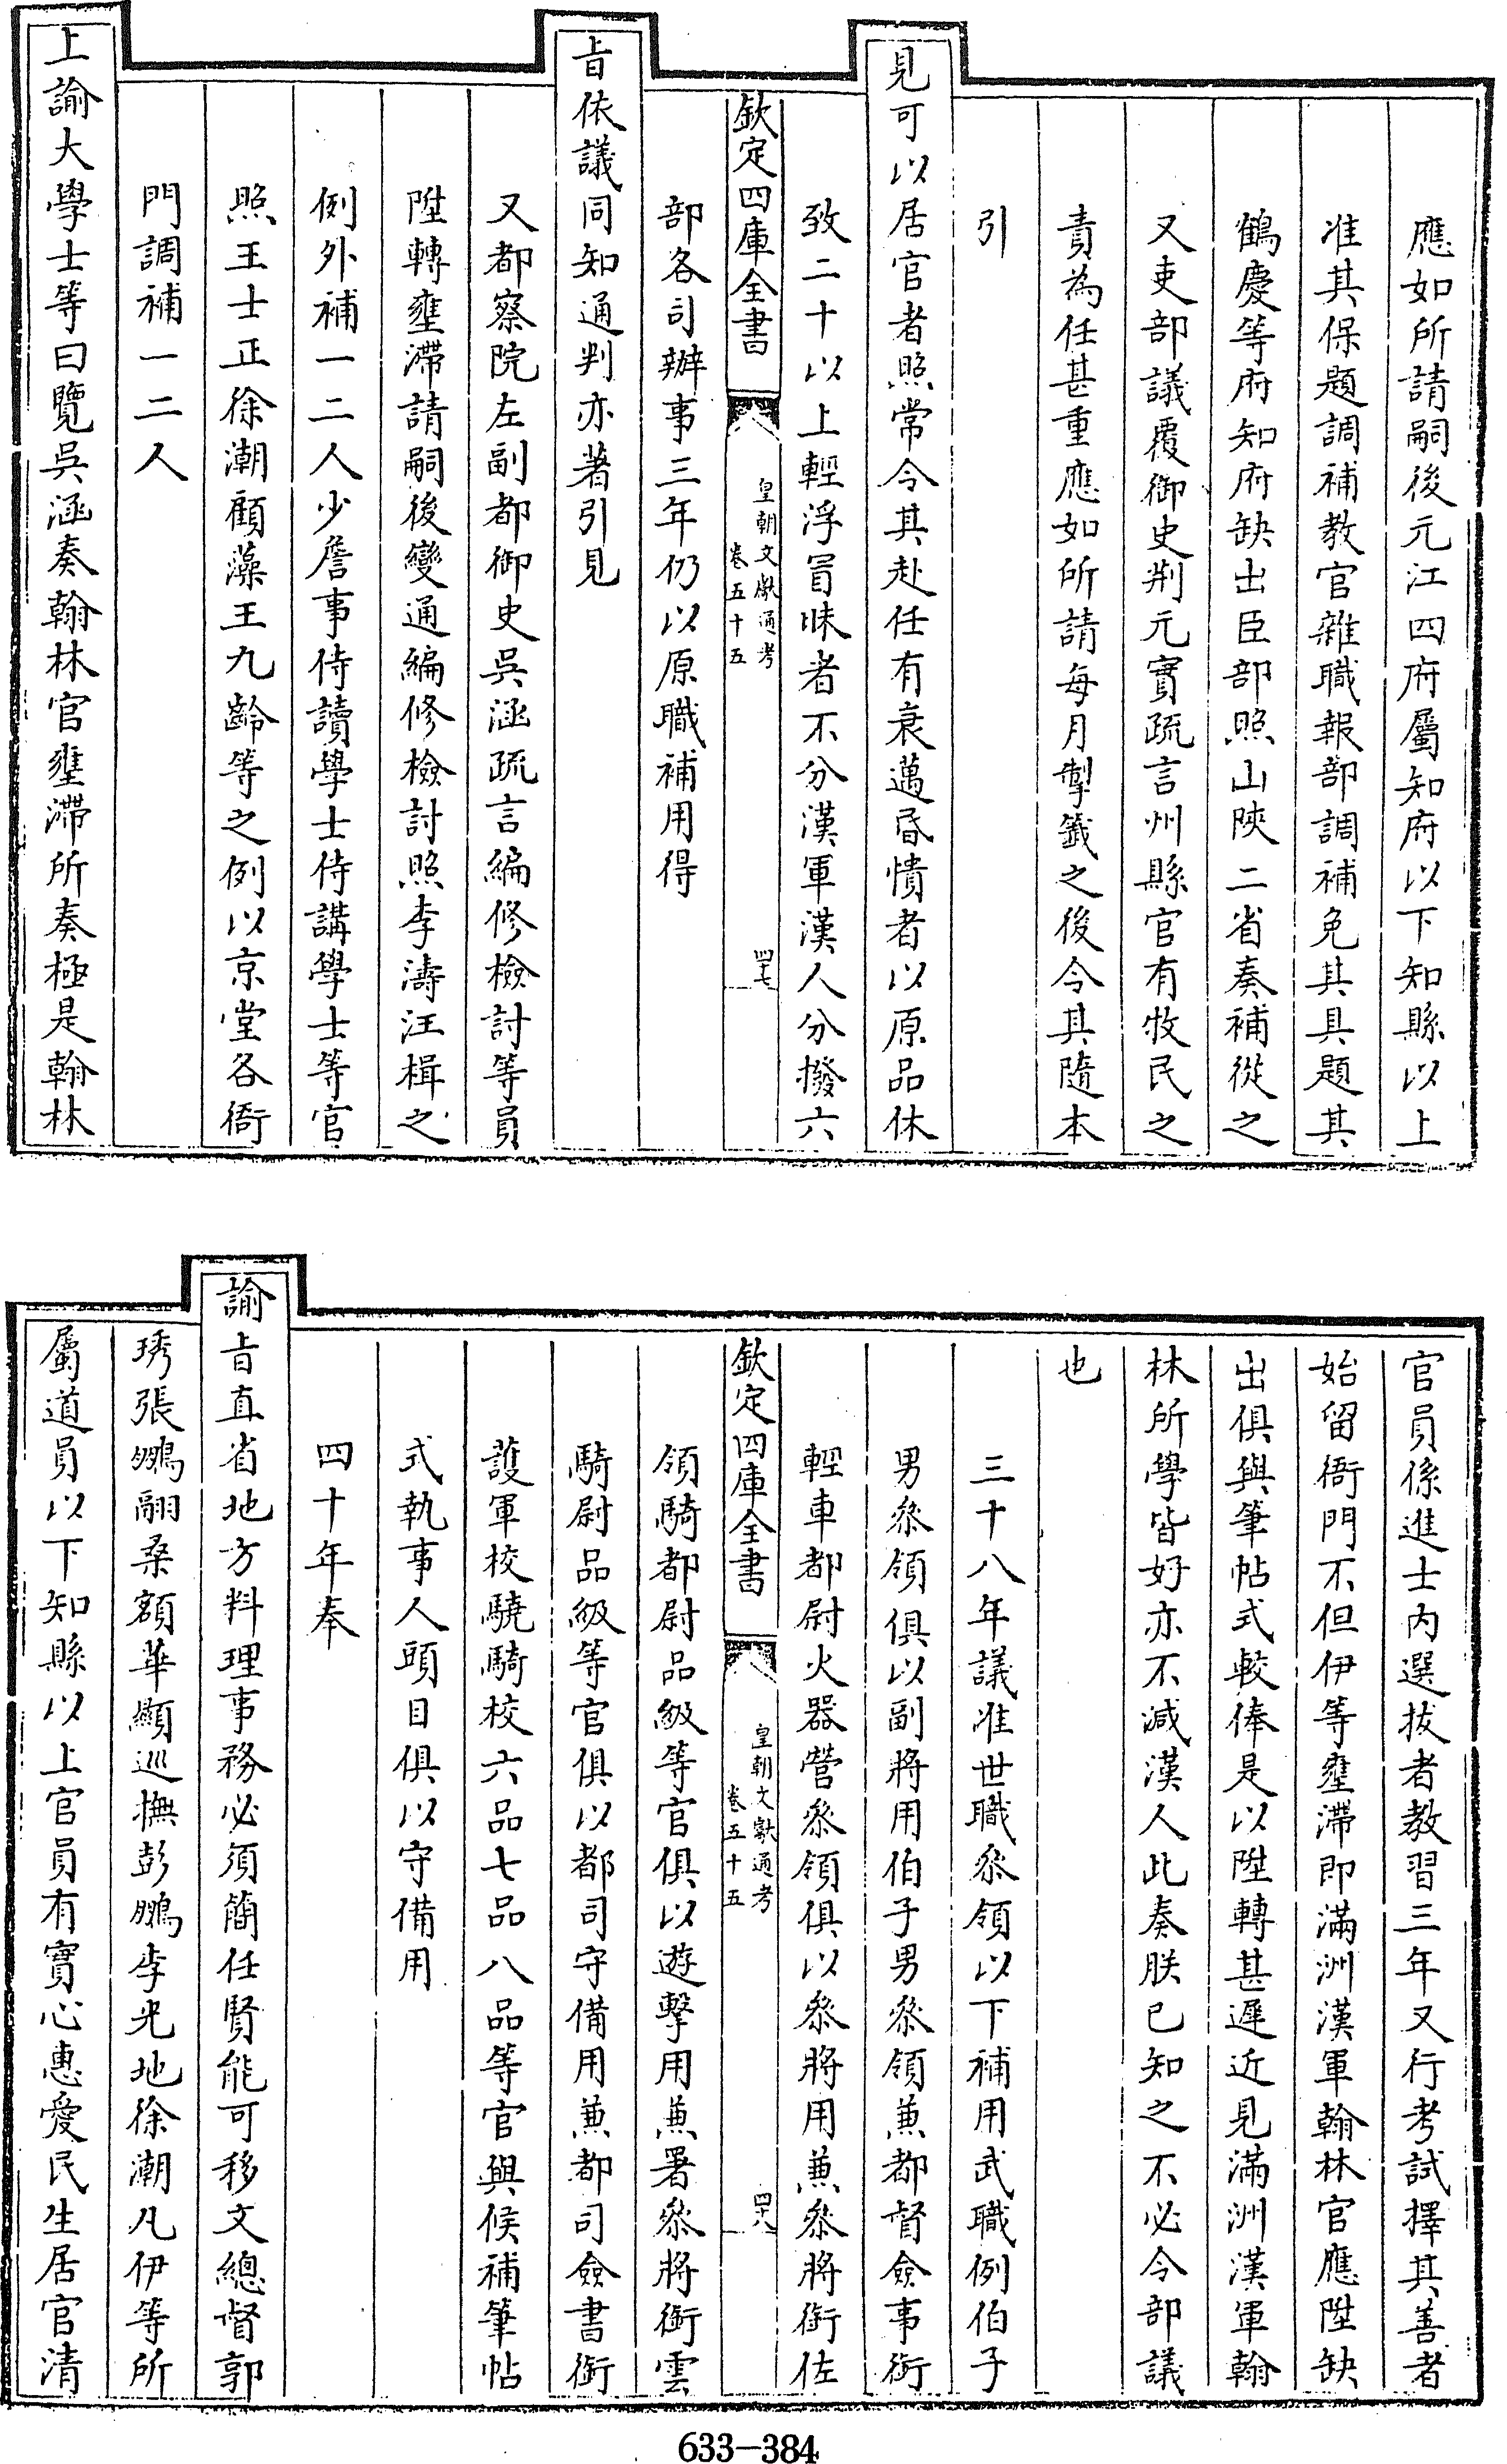 應如所請嗣後元江四府屬知府以下知縣以上
准其保題調補教官雜職報部調補免其具題其
鶴慶等府知府缺出臣部照山陝二省奏補從之
又吏部議覆御史荆元實疏言州縣官有牧民之
責為任甚重應如所請每月掣籤之後令其隨本
引
見可以居官者照常令其赴任有衰邁昏憒者以原品休
致二十以上輕浮冒昧者不分漢軍漢人分撥六
欽定四庫全書
皇朝文獻通考
卷五十五
四七
部各司辦事三年仍以原職補用得
旨依議同知通判亦著引見
又都察院左副都御史吳涵疏言編修檢討等員
陞轉壅滯請嗣後變通編修檢討照李濤汪楫之
例外補一二人少詹事侍讀學士侍講學士等官
照王士正徐潮顧藻王九齡等之例以京堂各衙
門調補一二人
上諭大學士等曰覽吳涵奏翰林官壅滯所奏極是翰林
官員係進士内選拔者教習三年又行考試擇其善者
始留衙門不但伊等壅滯即滿洲漢軍翰林官應陞缺
出俱與筆帖式較俸是以陞轉甚遲近見滿洲漢軍翰
林所學皆好亦不減漢人此奏朕已知之不必令部議
也
三十八年議准世職叅領以下補用武職例伯子
男叅領俱以副將用伯子男叅領兼都督僉事銜
輕車都尉火器營叅領俱以叅將用兼叅將銜佐
欽定四庫全書
皇朝文獻通考
卷五十五
四十八
領騎都尉品級等官俱以遊擊用兼署叅將銜雲
騎尉品級等官俱以都司守備用兼都司僉書銜
護軍校驍騎校六品七品八品等官與候補筆帖
式執事人頭目俱以守備用
四十年奉
諭旨直省地方料理事務必須簡任賢能可移文總督郭
琇張鵬翮桑額華顯巡撫彭鵬李光地徐潮凡伊等所
屬道員以下知縣以上官員有實心惠愛民生居官清
633-384